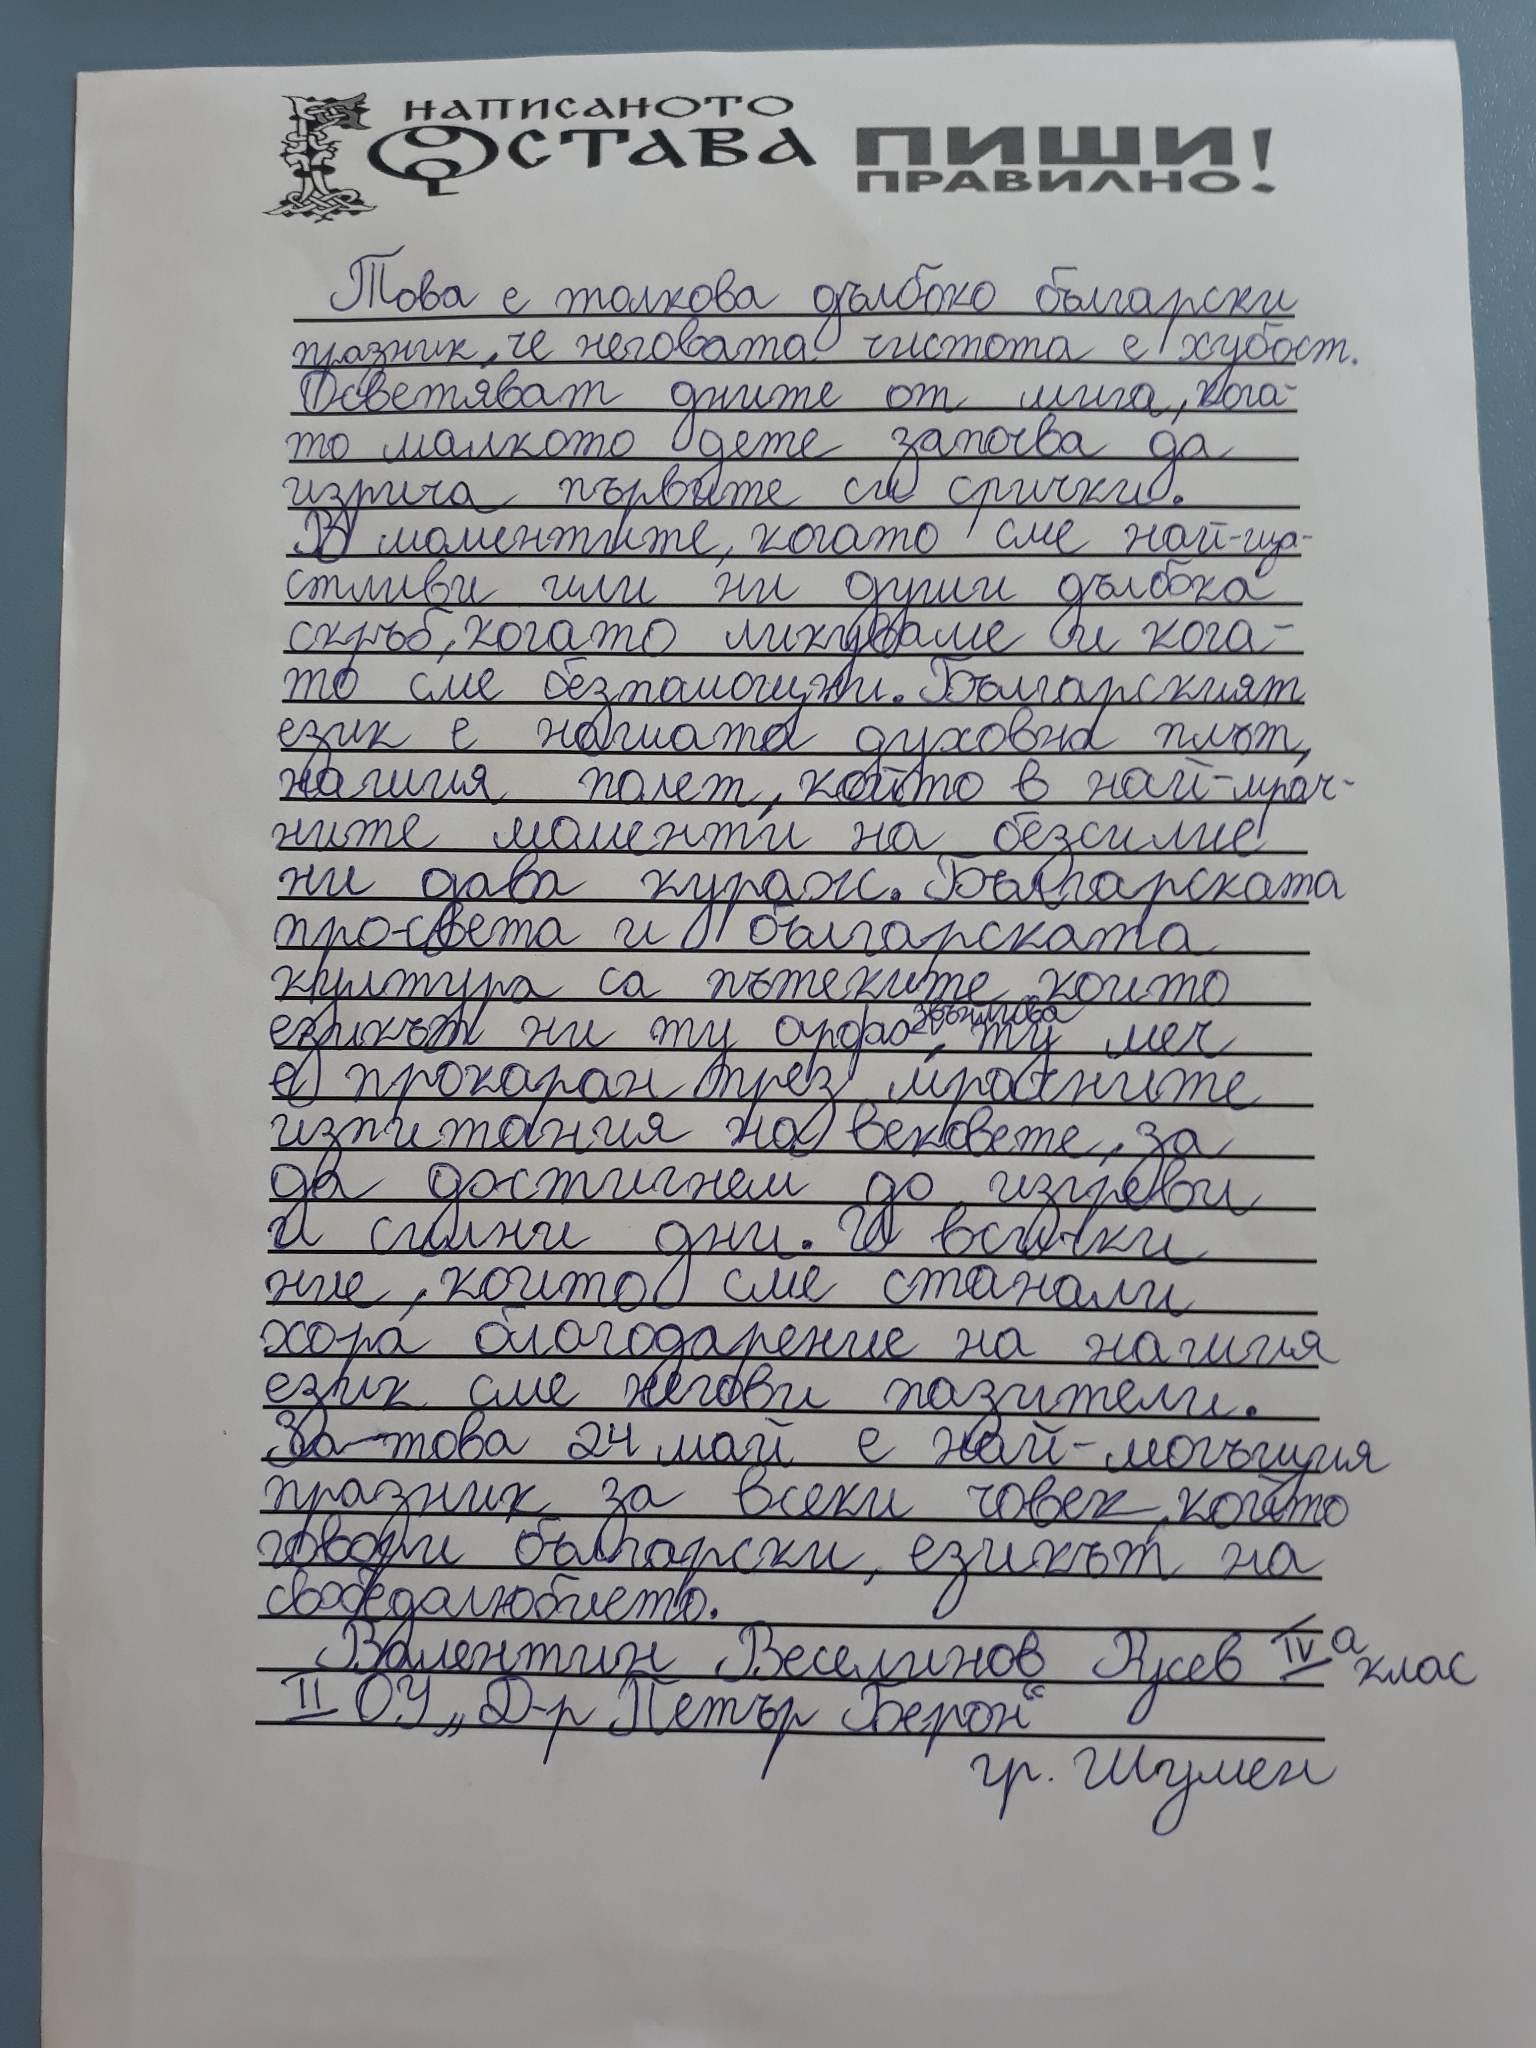 НАПИСАНОТО
ОСТАВА
ПИШИ!
ПРАВИЛНО!
Това е толкова дълбоко български
празник, че неговата чистота е хубост.
Осветяват дните от мига, кога-
то малкото дете започва да
изрича първите си срички.
В моментите, когато сме най-ща-
стливи или ни души дълбока
скръб, когато ликуваме и кога-
то сме безпомощни. Българският
език е нашата духовна плът,
нашия полет, който в най-мрач-
ните моменти на безсилие
ни дава кураж. Българската
просвета и българската
култура са пътеките които
езикът ни ту арфа звънлива, ту меч
е прокарал през мрачните
изпитания на вековете, за
да достигнем до изгреви
и силни дни. И всички
ние, които сме станали
хора благодарение на нашия
език сме негови пазители.
За-това 24 май е най-могъщия
празник за всеки човек, който
говори български, езикът на
свободолюбието.
Валентин Веселинов Русев IV а клас
II ОУ „Д-р Петър Берон“
гр. Шумен